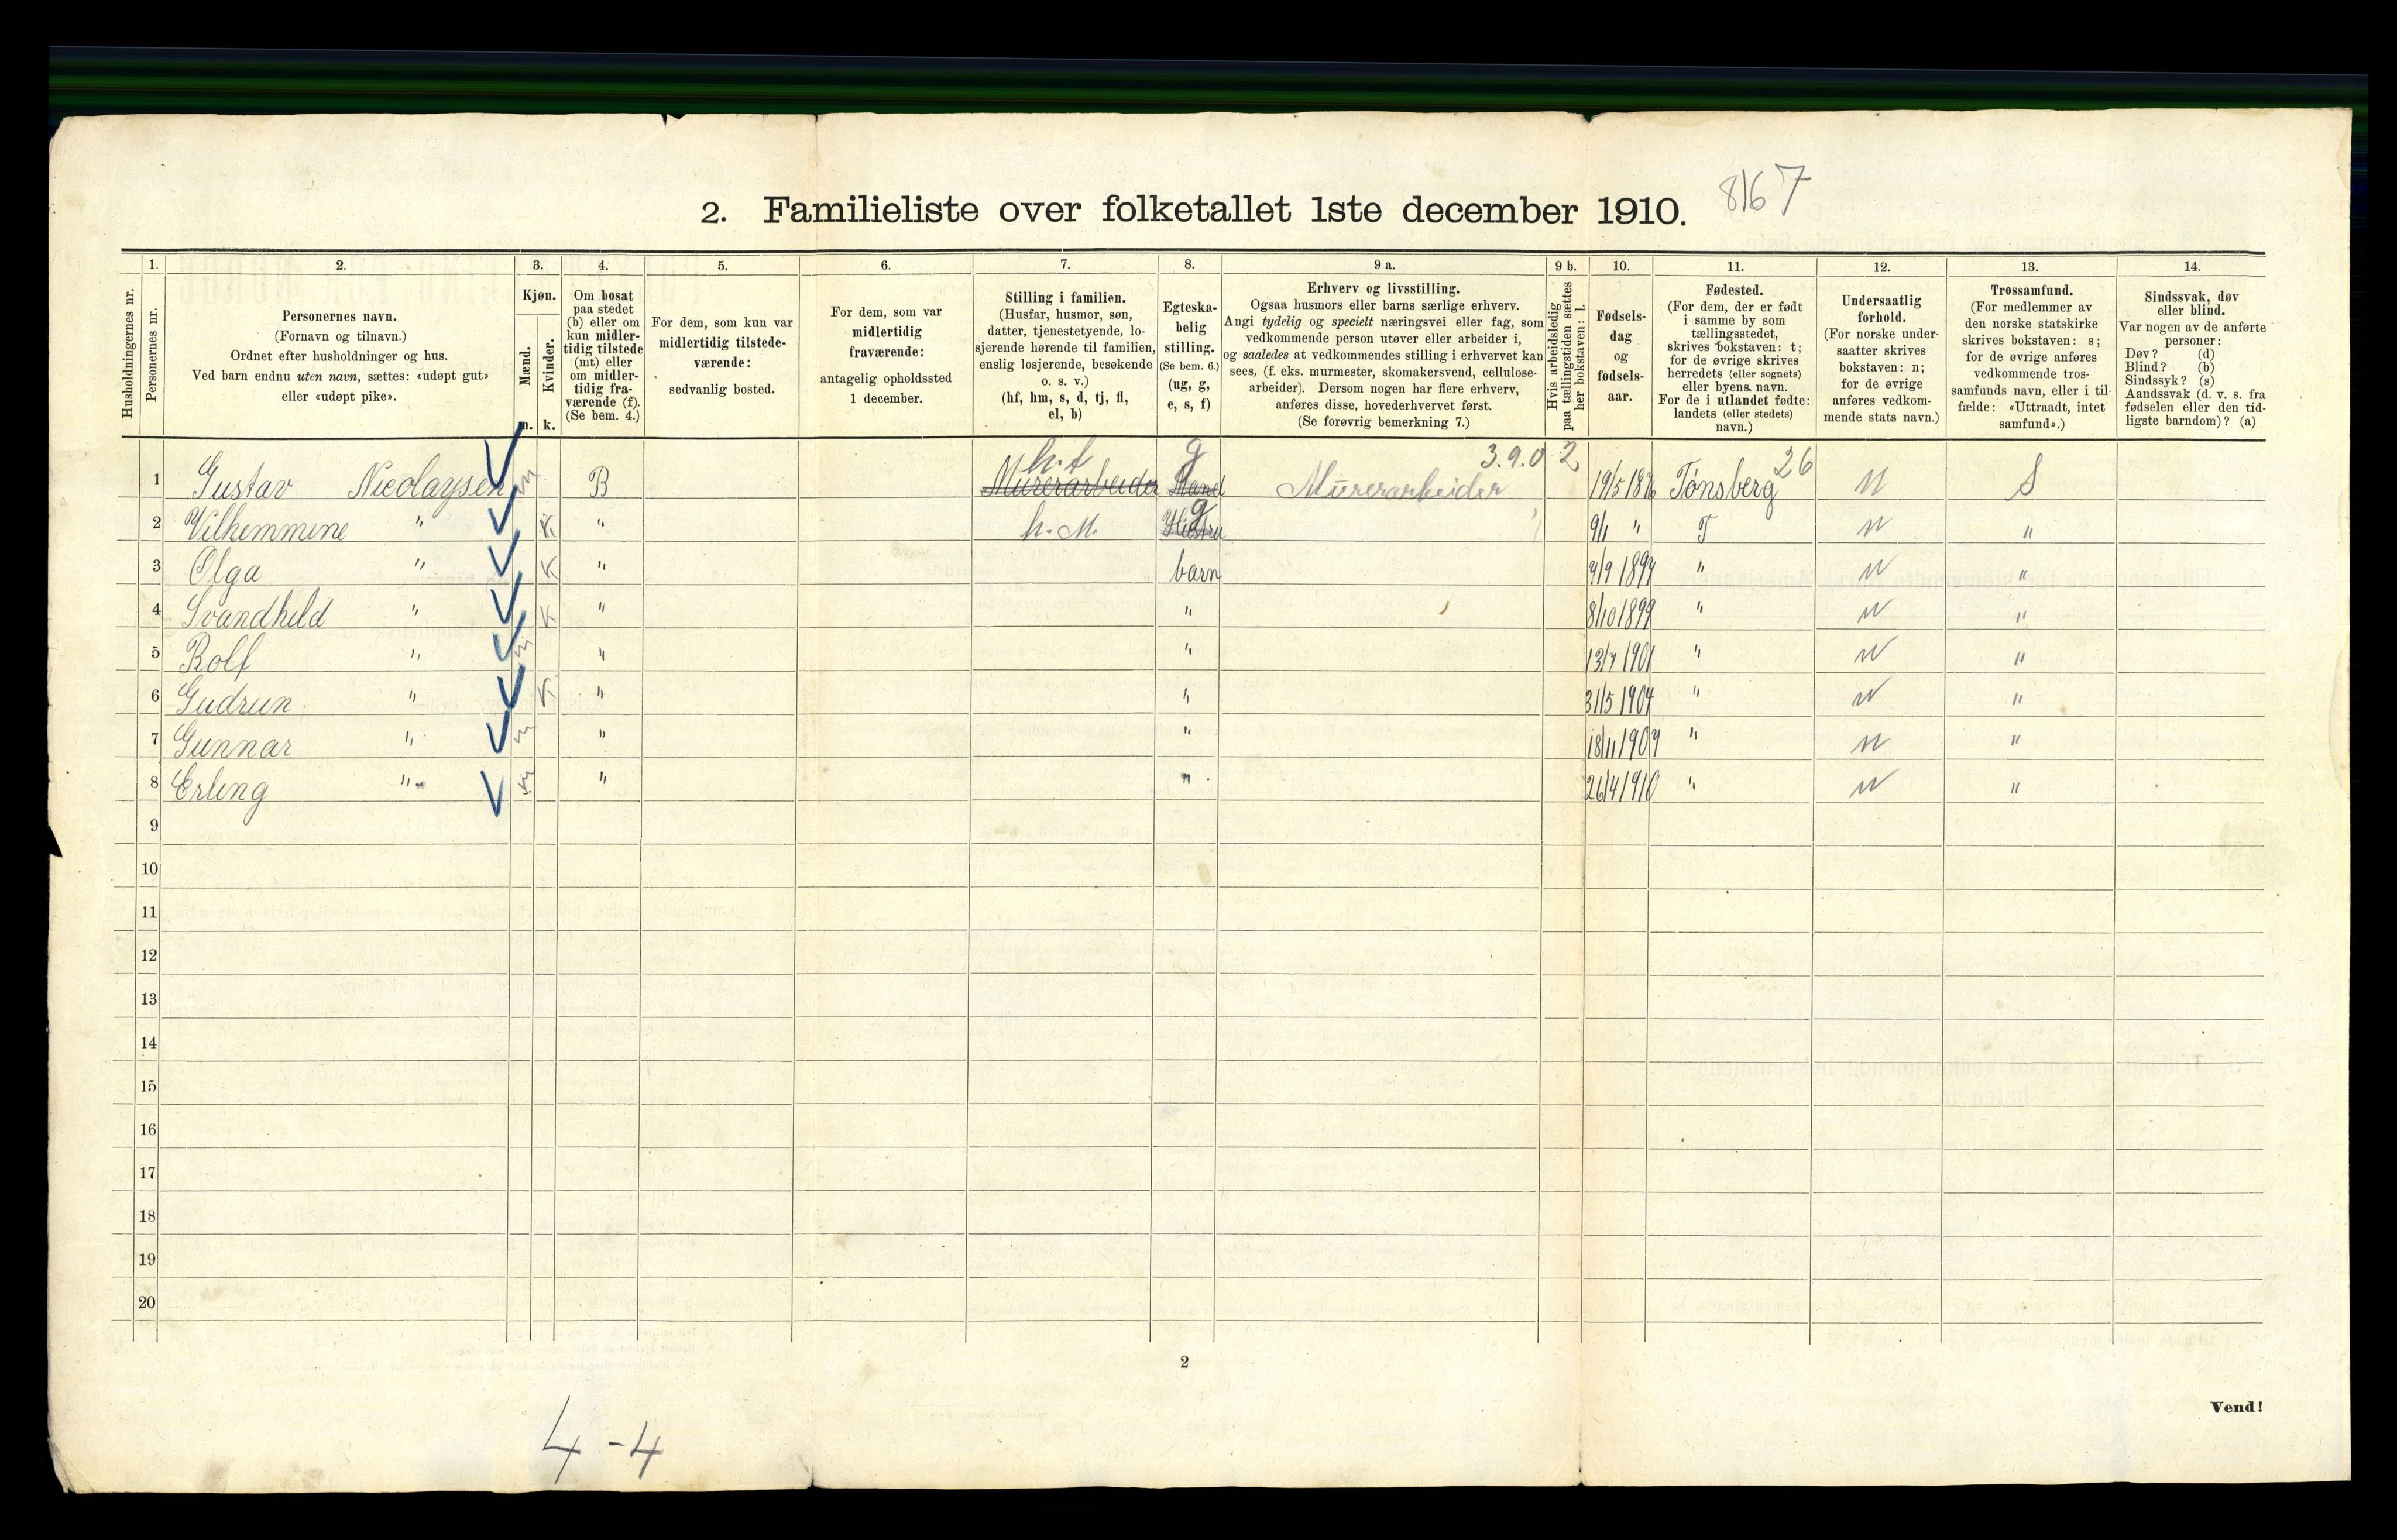 8167
2. Familieliste over folketallet 1ste december 1910.
Husholdningernes nr.
1. Personernes nr.
2. Personernes navn.
(Fornavn og tilnavn.)
Ordnet efter husholdninger og hus.
Ved barn endnu uten navn, sættes: «udøpt gut»
eller «udøpt pike».
3. Kjøn.
Mænd. m.
Kvinder. k.
4. Om bosat
paa stedet
(b) eller om
kun midler-
tidig tilstede
(mt) eller
om midler-
tidig fra-
værende (f).
(Se bem. 4.)
5. For dem, som kun var
midlertidig tilstede-
værende:
sedvanlig bosted.
6. For dem, som var
midlertidig
fraværende:
antagelig opholdssted
1 december.
7. Stilling i familien.
(Husfar, husmor, søn,
datter, tjenestetyende, lo-
sjerende hørende til familien,
enslig losjerende, besøkende
o. s. v.)
(hf, hm, s, d, tj, fl,
el, b)
8. Egteska-
belig
stilling.
(Se bem. 6.)
(ug, g,
e, s, f)
9 a. Erhverv og livsstilling.
Ogsaa husmors eller barns særlige erhverv.
Angi tydelig og specielt næringsvei eller fag, som
vedkommende person utøver eller arbeider i,
og saaledes at vedkommendes stilling i erhvervet kan
sees, (f. eks. murmester, skomakersvend, cellulose-
arbeider). Dersom nogen har flere erhverv,
anføres disse, hovederhvervet først.
(Se forøvrig bemerkning 7.)
9 b. Hvis arbeidsledig
paa tællingstiden sættes
her bokstaven: l.
10. Fødsels-
dag
og
fødsels-
aar.
11. Fødested.
(For dem, der er født
i samme by som
tællingsstedet,
skrives bokstaven: t;
for de øvrige skrives
herredets (eller sognets)
eller byens navn.
For de i utlandet fødte:
landets (eller stedets)
navn.)
12. Undersaatlig
forhold.
(For norske under-
saatter skrives
bokstaven: n;
for de øvrige
anføres vedkom-
mende stats navn.)
13. Trossamfund.
(For medlemmer av
den norske statskirke
skrives bokstaven: s;
for de øvrige anføres
vedkommende tros-
samfunds navn, eller i til-
fælde: «Uttraadt, intet
samfund».)
14. Sindssvak, døv
eller blind.
Var nogen av de anførte
personer:
Døv? (d)
Blind? (b)
Sindssyk? (s)
Aandssvak (d. v. s. fra
fødselen eller den tid-
ligste barndom)? (a)
h.f g 3.9.0 2 26
1 Gustav Nicolaysen m B Murerarbeider Mand Murerarbeider 19/5 1876 Tønsberg N S
2 Vilhemmine " K " h.M. g Hustru 9/1 " T N "
3 Olga " K " barn 9/9 1897 " N "
4 Svandhild " K " " 8/10 1899 " N "
5 Rolf " m " " 13/7 1901 " N "
6 Gudrun " K " " 31/5 1904 " N "
7 Gunnar " m " " 18/11 1907 " N "
8 Erling " m " " 26/4 1910 " N "
9
10
11
12
13
14
15
16
17
18
19
20
2
Vend!
4-4